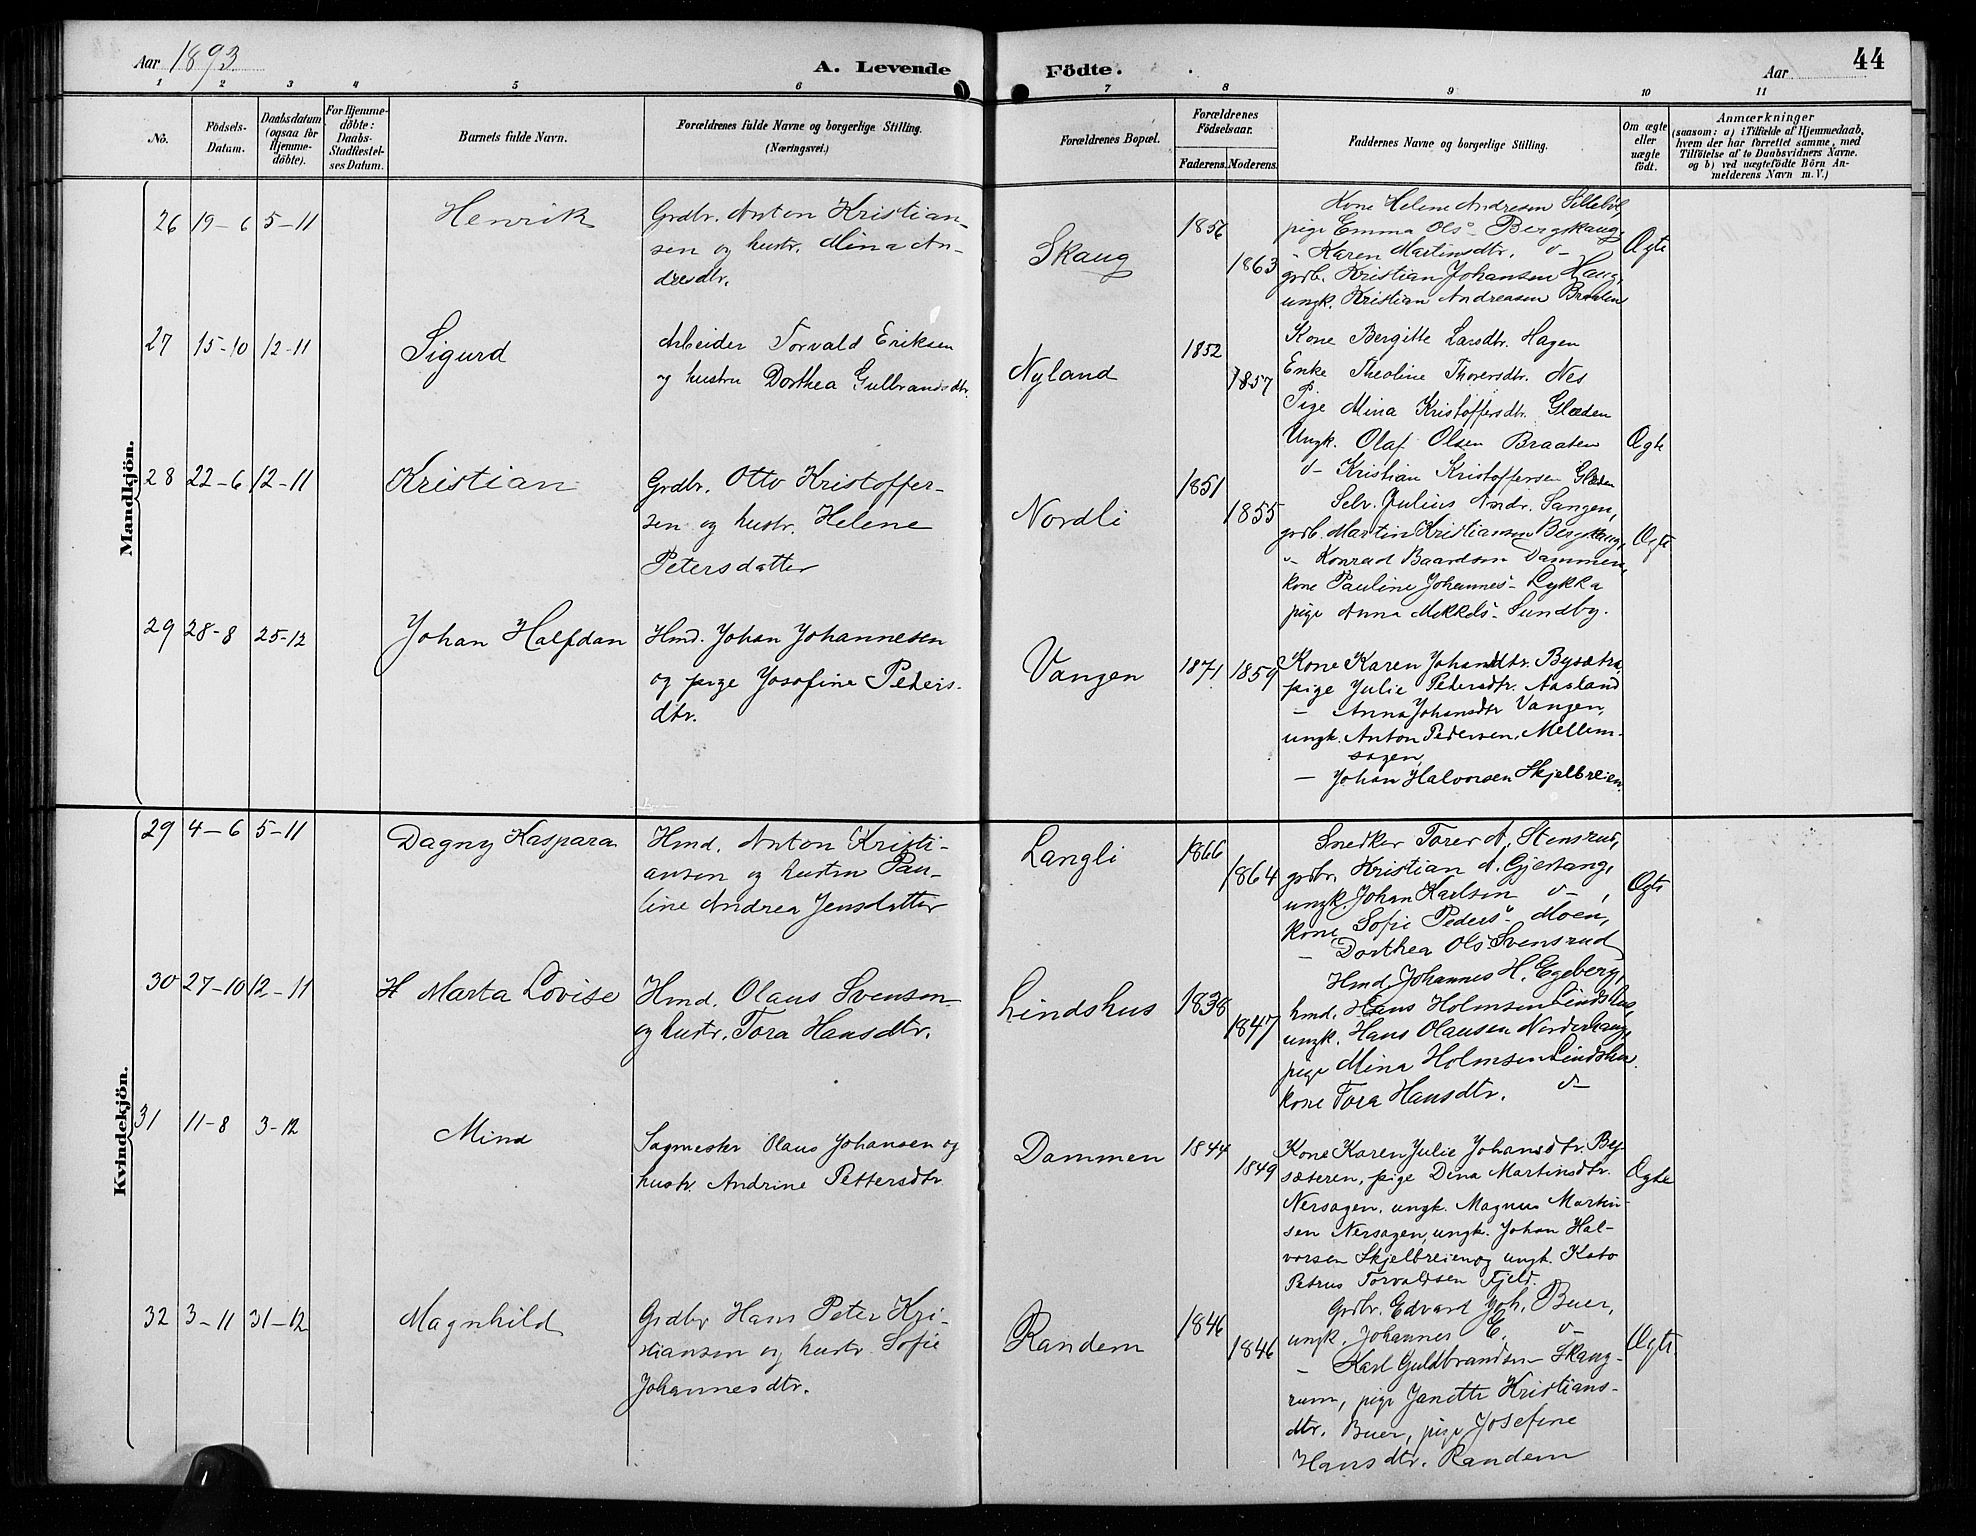 Aar 1893
A. Levende Födte.
Aar
44
1 2 3 4 5 6 7 8 9 10 11
No.
Födsels-
Datum.
Daabsdatum
(ogsaa for
Hjemme-
döbte).
For Hjemme-
döbte:
Daabs-
Stadfæstel-
ses Datum.
Barnets fulde Navn.
Forældrenes fulde Navne og borgerlige Stilling.
(Næringsvei.)
Forældrenes Bopæl.
Forældrenes
Födselsaar.
Faderens.
Moderens.
Faddernes Navne og borgerlige Stilling.
Om ægte
eller
uægte
födt.
Anmærkninger
(saasom: a) i Tilfælde af Hjemmedaab,
hvem der har forrettet samme, med
Tilföielse af to Daabsvidners Navne.
og b) ved uægtefödte Börn An-
melderens Navn m. V.)
Mandkjön.
26 19-6 5-11 Henrik
Grdbr. Anton Kristian-
sen og hustr. Mina An-
dresdtr.
Skaug
1856
1863
Kone Helene Andresen
pige Emma Ols" Bergskaug,
- Karen Martinsdtr. o-
grdb. Kristian Johansen Haug,
ungk. Kristian Andreasen Braaten
Ægte
27 15-10 12-11 Sigurd
Arbeider Torvald Eriksen
og hustru Dorthea Gulbrandsdtr.
Nyland
1852
1857
Kone Bergitte Larsdtr. Hagen
Enke Theoline Thorersdtr. Nes
Pige Mina Kristoffersdtr. Glæden
Ungk. Olaf Olsen Braaten
o- Kristian Kristoffersen Glæden
Ægte
28 22-6 12-11 Kristian
Grdbr. Otto Kristoffer-
sen og hustr. Helene
Petersdatter
Nordli
1851
1855
Selv. Julius Andr. Sangen,
grdb. Martin Kristiansen Bergskaug,
o- Konrad Baardsen Dammen,
kone Pauline Johannes"- Lykka
pige Anna Mikkels"- Sundby.
Ægte
29 28-8 25-12 Johan Halfdan
Hmd. Johan Johannesen
og pige Josofine Peters-
dtr.
Vangen
1871
1859
Kone Karen Johansdtr. Bysætra
pige Julie Petersdtr. Aasland
- Anna Johansdtr Vangen,
ungk. Anton Pedersen, Mellem-
sagen,
- Johan Halvorsen Skjelbreien
Kvindekjön.
29 4-6 5-11 Dagny Kaspara
Hmd. Anton Kristi-
ansen og hustru Pau-
line Andrea Jensdatter
Langli
1866
1864
Snedker Torer A. Stensrud,
grdbr. Kristian A. Gjestang,
ungk. Johan Karlsen o-,
kone Sofie Peders"- Moen,
- Dorthea Ols" Svensrud
Ægte
30 27-10 12-11 H Marta Lovise
Hmd. Olaus Svensen
og hustr. Tora Hansdtr.
Lindshus
1838
1847
Hmd. Johannes H. Egeberg,
hmd. Hans Holmsen Lindshus,
ungk. Hans Olausen Norderhaug,
pige Mina Holmsen Lindshus.
kone Tora Hansdtr. o-
31 11-8 3-12 Mina
Sagmester Olaus Johansen og
hustr. Andrine Pettersdtr
Dammen
1844
1849
Kone Karen Julie Johansdtr. By-
sæteren, pige Dina Martinsdtr.
Nersagen, ungk. Magnus Martin-
sen Nersagen, ungk. Johan Hal-
vorsen Skjelbreien og ungk. Kato
Petrus Torvaldsen Fjeld.
Ægte
32 3-11 31-12 Magnhild
Grdbr Hans Peter Kri-
stiansen og hustr. Sofie
Johannesdtr.
Randem
1846
1846
Grdbr. Edvard Joh. Buer,
ungk. Johannes E. o-
- Karl Guldbrandsen Skaug-
rum, pige Janette Kristians-
dtr. Buer, pige Josefine
Hansdtr. Randem
Ægte